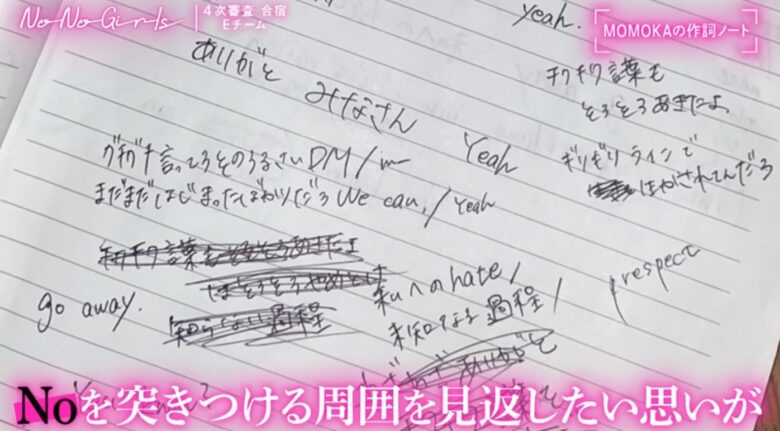 No No Girls
4次審査 合宿
Eチーム
MOMOKAの作詞ノート
yeah.
ありがと
みなさん
チクチク言葉も
そろそろあきたよ、
ギリギリラインで
はがされてんだろ
ガチガチ言ってろそのうるさいDM/
Yeah
まだまだはじまったばかりだろ We can,/yeah
go away.
私へのhate/
未知なる過程/
respect
Noを突きつける周囲を見返したい思いが